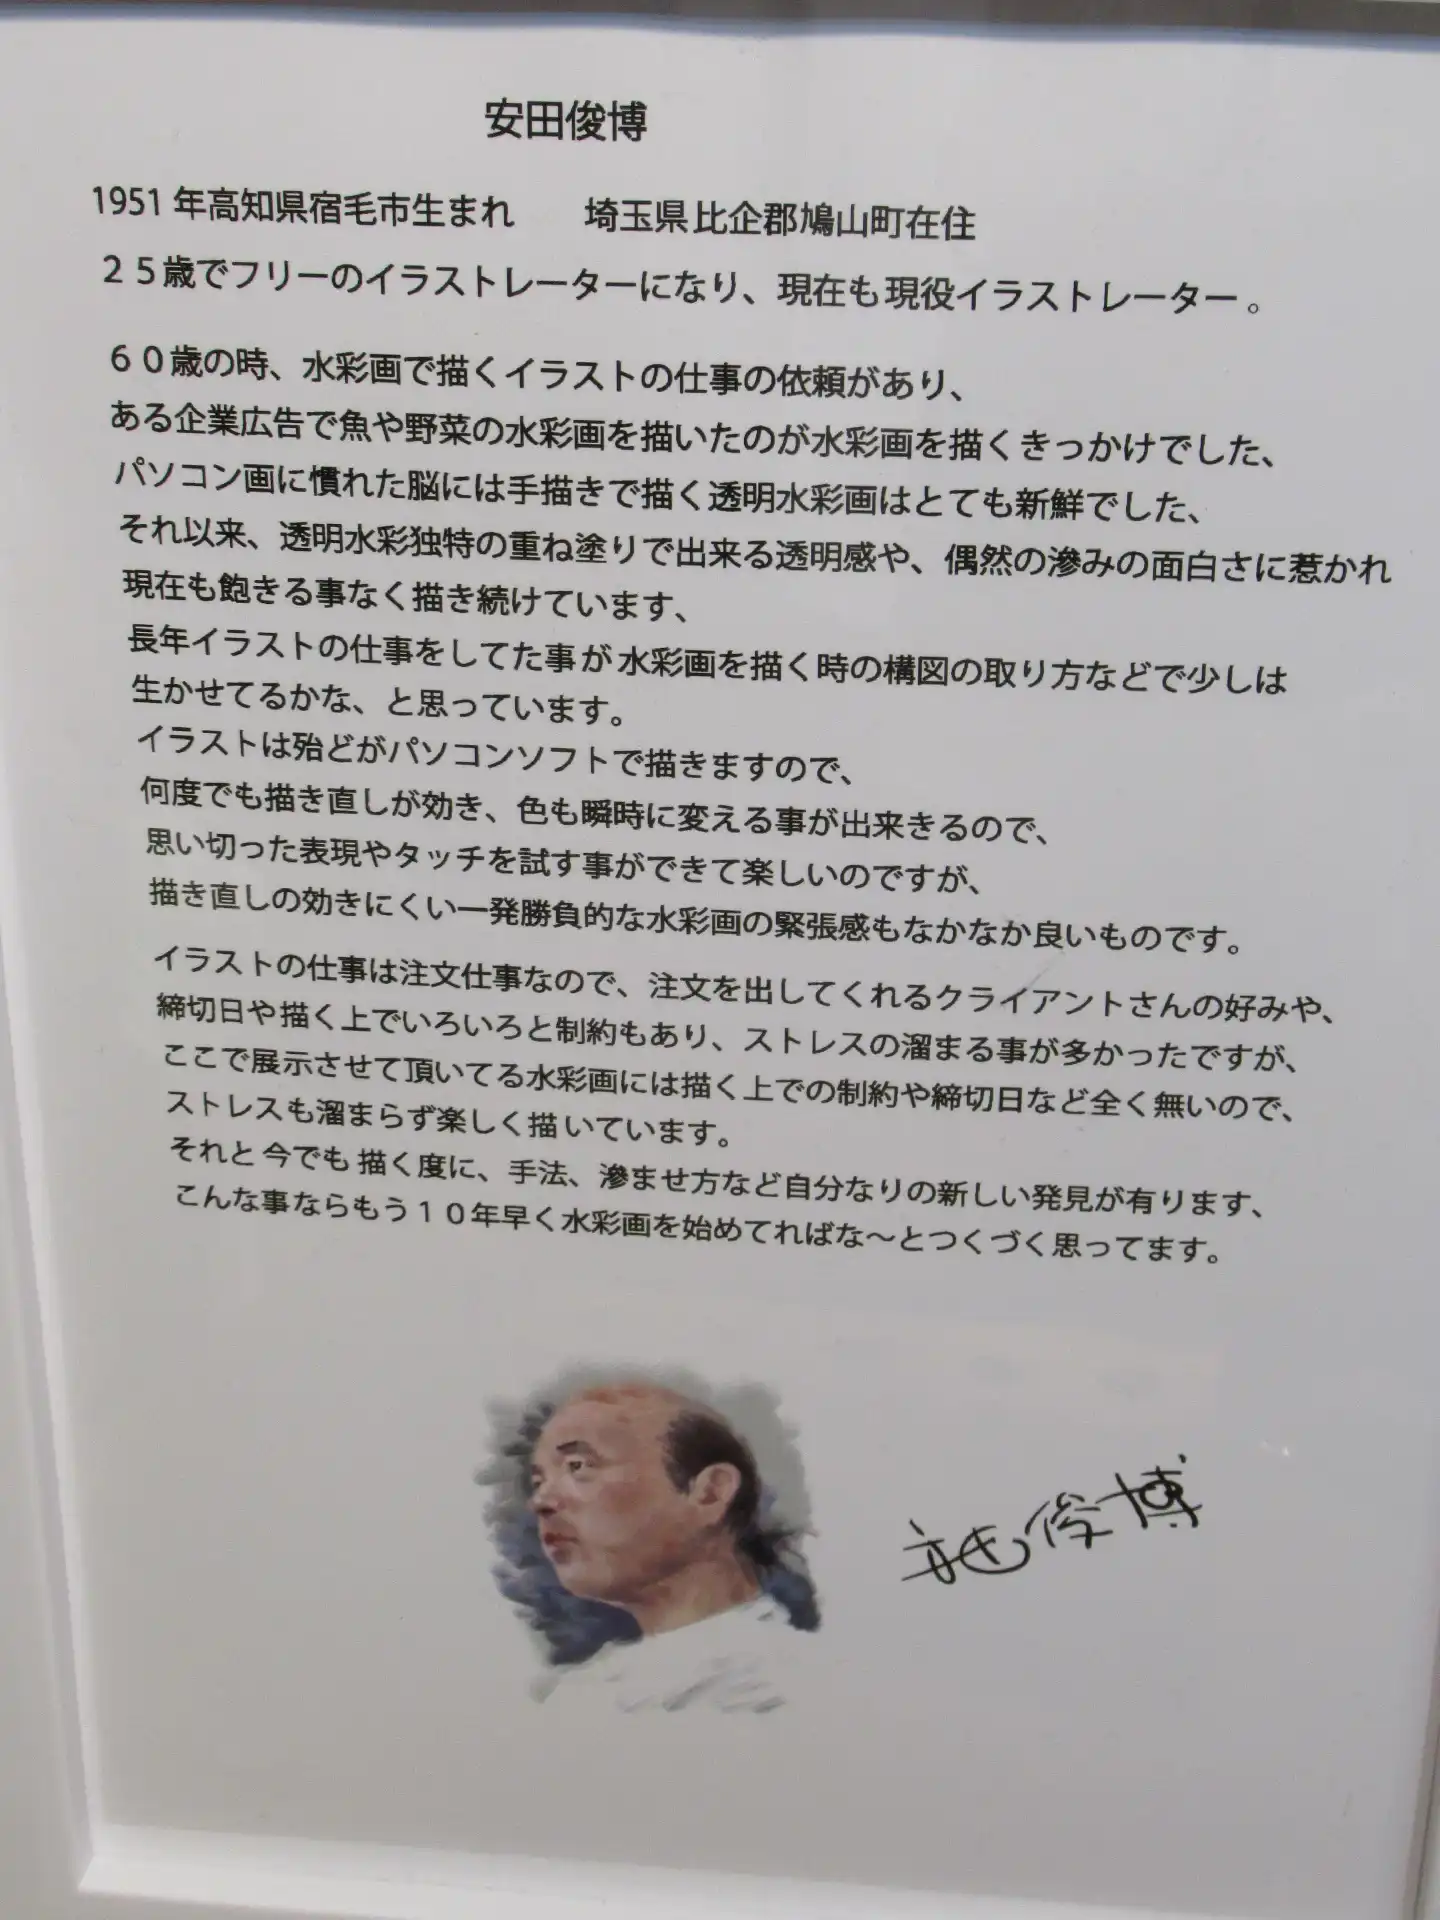 安田俊博
1951年高知県宿毛市生まれ　　埼玉県比企郡鳩山町在住
２５歳でフリーのイラストレーターになり、現在も現役イラストレーター。
６０歳の時、水彩画で描くイラストの仕事の依頼があり、
ある企業広告で魚や野菜の水彩画を描いたのが水彩画を描くきっかけでした、
パソコン画に慣れた脳には手描きで描く透明水彩画はとても新鮮でした、
それ以来、透明水彩独特の重ね塗りで出来る透明感や、偶然の滲みの面白さに惹かれ
現在も飽きる事なく描き続けています、
長年イラストの仕事をしてた事が水彩画を描く時の構図の取り方などで少しは
生かせてるかな、と思っています。
イラストは殆どがパソコンソフトで描きますので、
何度でも描き直しが効き、色も瞬時に変える事が出来きるので、
思い切った表現やタッチを試す事ができて楽しいのですが、
描き直しの効きにくい一発勝負的な水彩画の緊張感もなかなか良いものです。
イラストの仕事は注文仕事なので、注文を出してくれるクライアントさんの好みや、
締切日や描く上でいろいろと制約もあり、ストレスの溜まる事が多かったですが、
ここで展示させて頂いてる水彩画には描く上での制約や締切日など全く無いので、
ストレスも溜まらず楽しく描いています。
それと今でも描く度に、手法、滲ませ方など自分なりの新しい発見が有ります、
こんな事ならもう１０年早く水彩画を始めてればな～とつくづく思ってます。
安田俊博